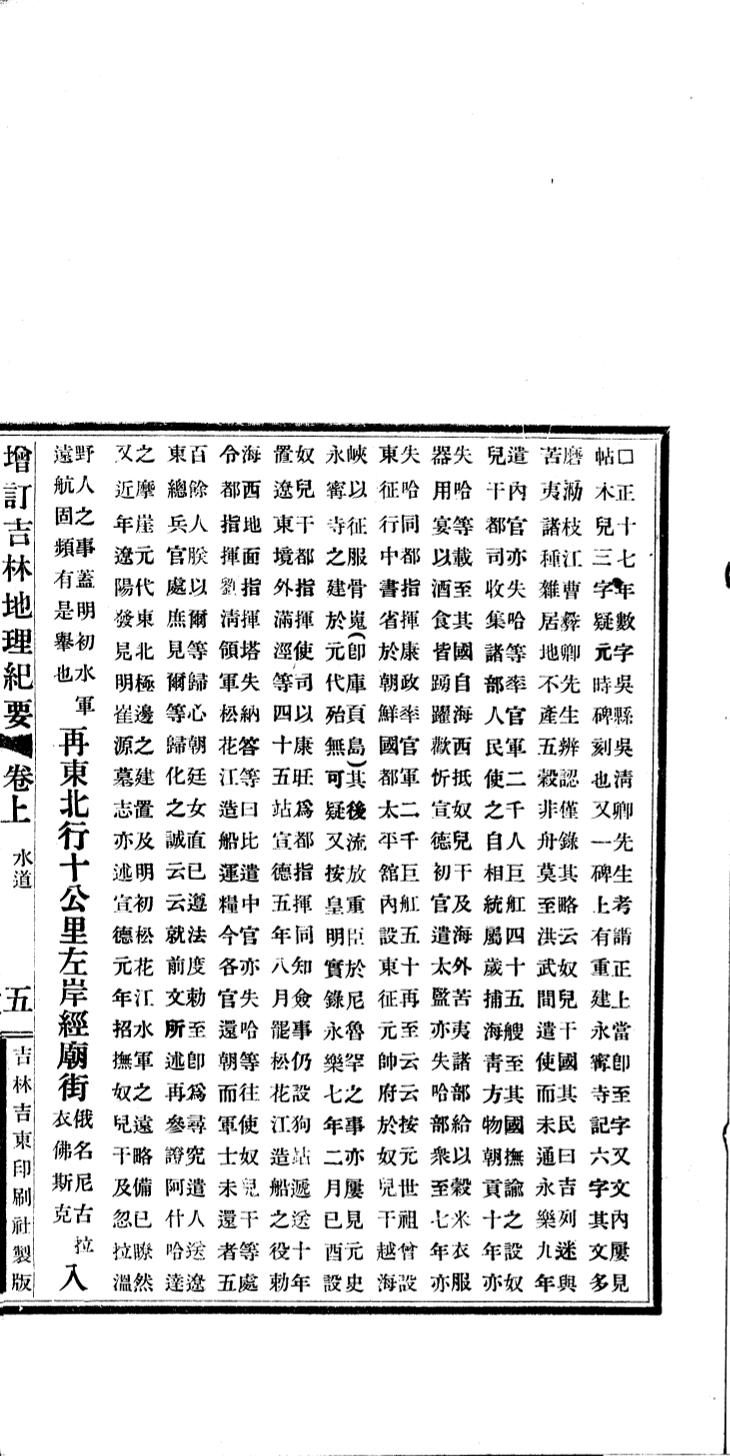 □正十七年數字吳縣吳清卿先生考謂正上當卽至字又文內屢見
帖木兒三字疑元時碑刻也又一碑上有重建永甯寺記六字其文多
磨泐枝江曹彝卿先生辨認僅錄其略云奴兒干國其民曰吉列迷與
苦夷諸種雜居地不產五穀非舟莫至洪武間遣使而未通永樂九年
遣內官亦失哈等率官軍二千人巨舡四十五艘至其國撫諭之設奴
兒干都司收集諸部人民使之自相統屬歲捕海靑方物朝貢十年亦
失哈等載至其國自海西抵奴兒干及海外苦夷諸部給以穀米衣服
器用宴以酒食皆踴躍歡忻宣德初官遣太監亦失哈部衆至七年亦
失哈同都指揮康政率官軍二千巨舡五十再至云云按元世祖曾設
東征行中書省於朝鮮國都太平館內設東征元帥府於奴兒干越海
峽以征服骨嵬(卽庫頁島)其後流放重臣於尼魯罕之事亦屢見元史
永甯寺之建於元代殆無可疑又按皇明實錄永樂七年二月已酉設
奴兒干都指揮使司以康旺爲都指揮同知僉事仍設狗站遞送十年
置遼東境外滿涇等四十五站宣德五年八月罷松花江造船之役勅
海西地面指揮塔失納答等曰比遣中官亦失哈等往使奴兒干等處
令都指揮劉淸領軍松花江造船運糧今各官還朝而軍士未還者五
百餘人朕以爾等歸心朝廷女直已遵法度勅至卽爲尋究遣人送遼
東總兵官處庶見爾等歸化之誠云云就前文所述再參證阿什哈達
之摩崖元代東北極邊之建置及明初松花江水軍之遠略備已瞭然
又近年遼陽發見明崔源墓志亦述宣德元年招撫奴兒干及忽拉溫
野人之事蓋明初水軍
遠航固頻有是舉也
再東北行十公里左岸經廟街
俄名尼古拉
衣佛斯克
入
增訂吉林地理紀要 卷上 水道 五
吉林吉東印刷社製版